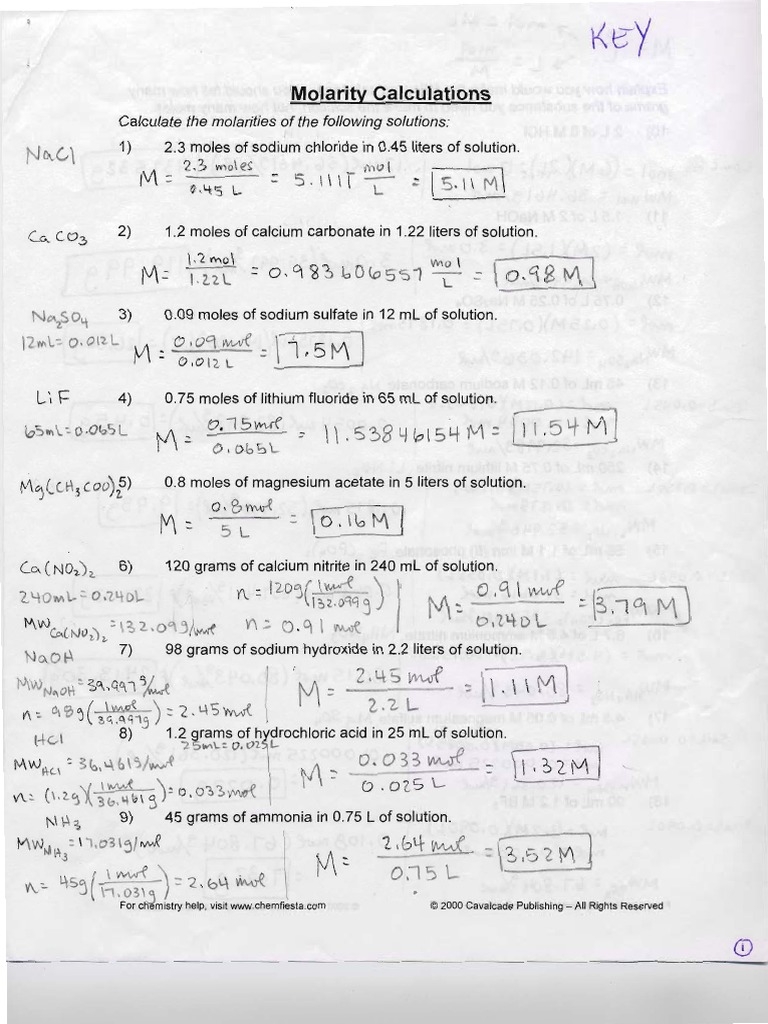 KEY
Molarity Calculations
Calculate the molarities of the following solutions:
NaCl
1) 2.3 moles of sodium chloride in 0.45 liters of solution.
M = 2.3 moles / 0.45 L = 5.1111 mol/L = 5.11 M
CaCO3 2) 1.2 moles of calcium carbonate in 1.22 liters of solution.
M = 1.2 mol / 1.22 L = 0.983606557 mol/L = 0.98 M
Na2SO4 3) 0.09 moles of sodium sulfate in 12 mL of solution.
12mL = 0.012L
M = 0.09 mol / 0.012 L = 7.5 M
LiF 4) 0.75 moles of lithium fluoride in 65 mL of solution.
65mL = 0.065L
M = 0.75 mol / 0.065L = 11.53846154 M = 11.54 M
Mg(CH3COO)2 5) 0.8 moles of magnesium acetate in 5 liters of solution.
M = 0.8 mol / 5 L = 0.16 M
Ca(NO2)2 6) 120 grams of calcium nitrite in 240 mL of solution.
240mL = 0.240L
n = 120g (1mol / 132.099g)
M = 0.91 mol / 0.240L = 3.79 M
MW Ca(NO2)2 = 132.099/mol
n = 0.91 mol
NaOH 7) 98 grams of sodium hydroxide in 2.2 liters of solution.
MW NaOH = 39.997g/mol
n = 98g (1mol / 39.997g) = 2.45 mol
M = 2.45 mol / 2.2 L = 1.11 M
HCl 8) 1.2 grams of hydrochloric acid in 25 mL of solution.
25mL = 0.025L
MW HCl = 36.461g/mol
n = (1.2g)(1mol / 36.461g) = 0.033 mol
M = 0.033 mol / 0.025 L = 1.32 M
NH3 9) 45 grams of ammonia in 0.75 L of solution.
MW NH3 = 17.031g/mol
n = 45g (1 mol / 17.031g) = 2.64 mol
M = 2.64 mol / 0.75 L = 3.52 M
For chemistry help, visit www.chemfiesta.com © 2000 Cavalcade Publishing – All Rights Reserved
1